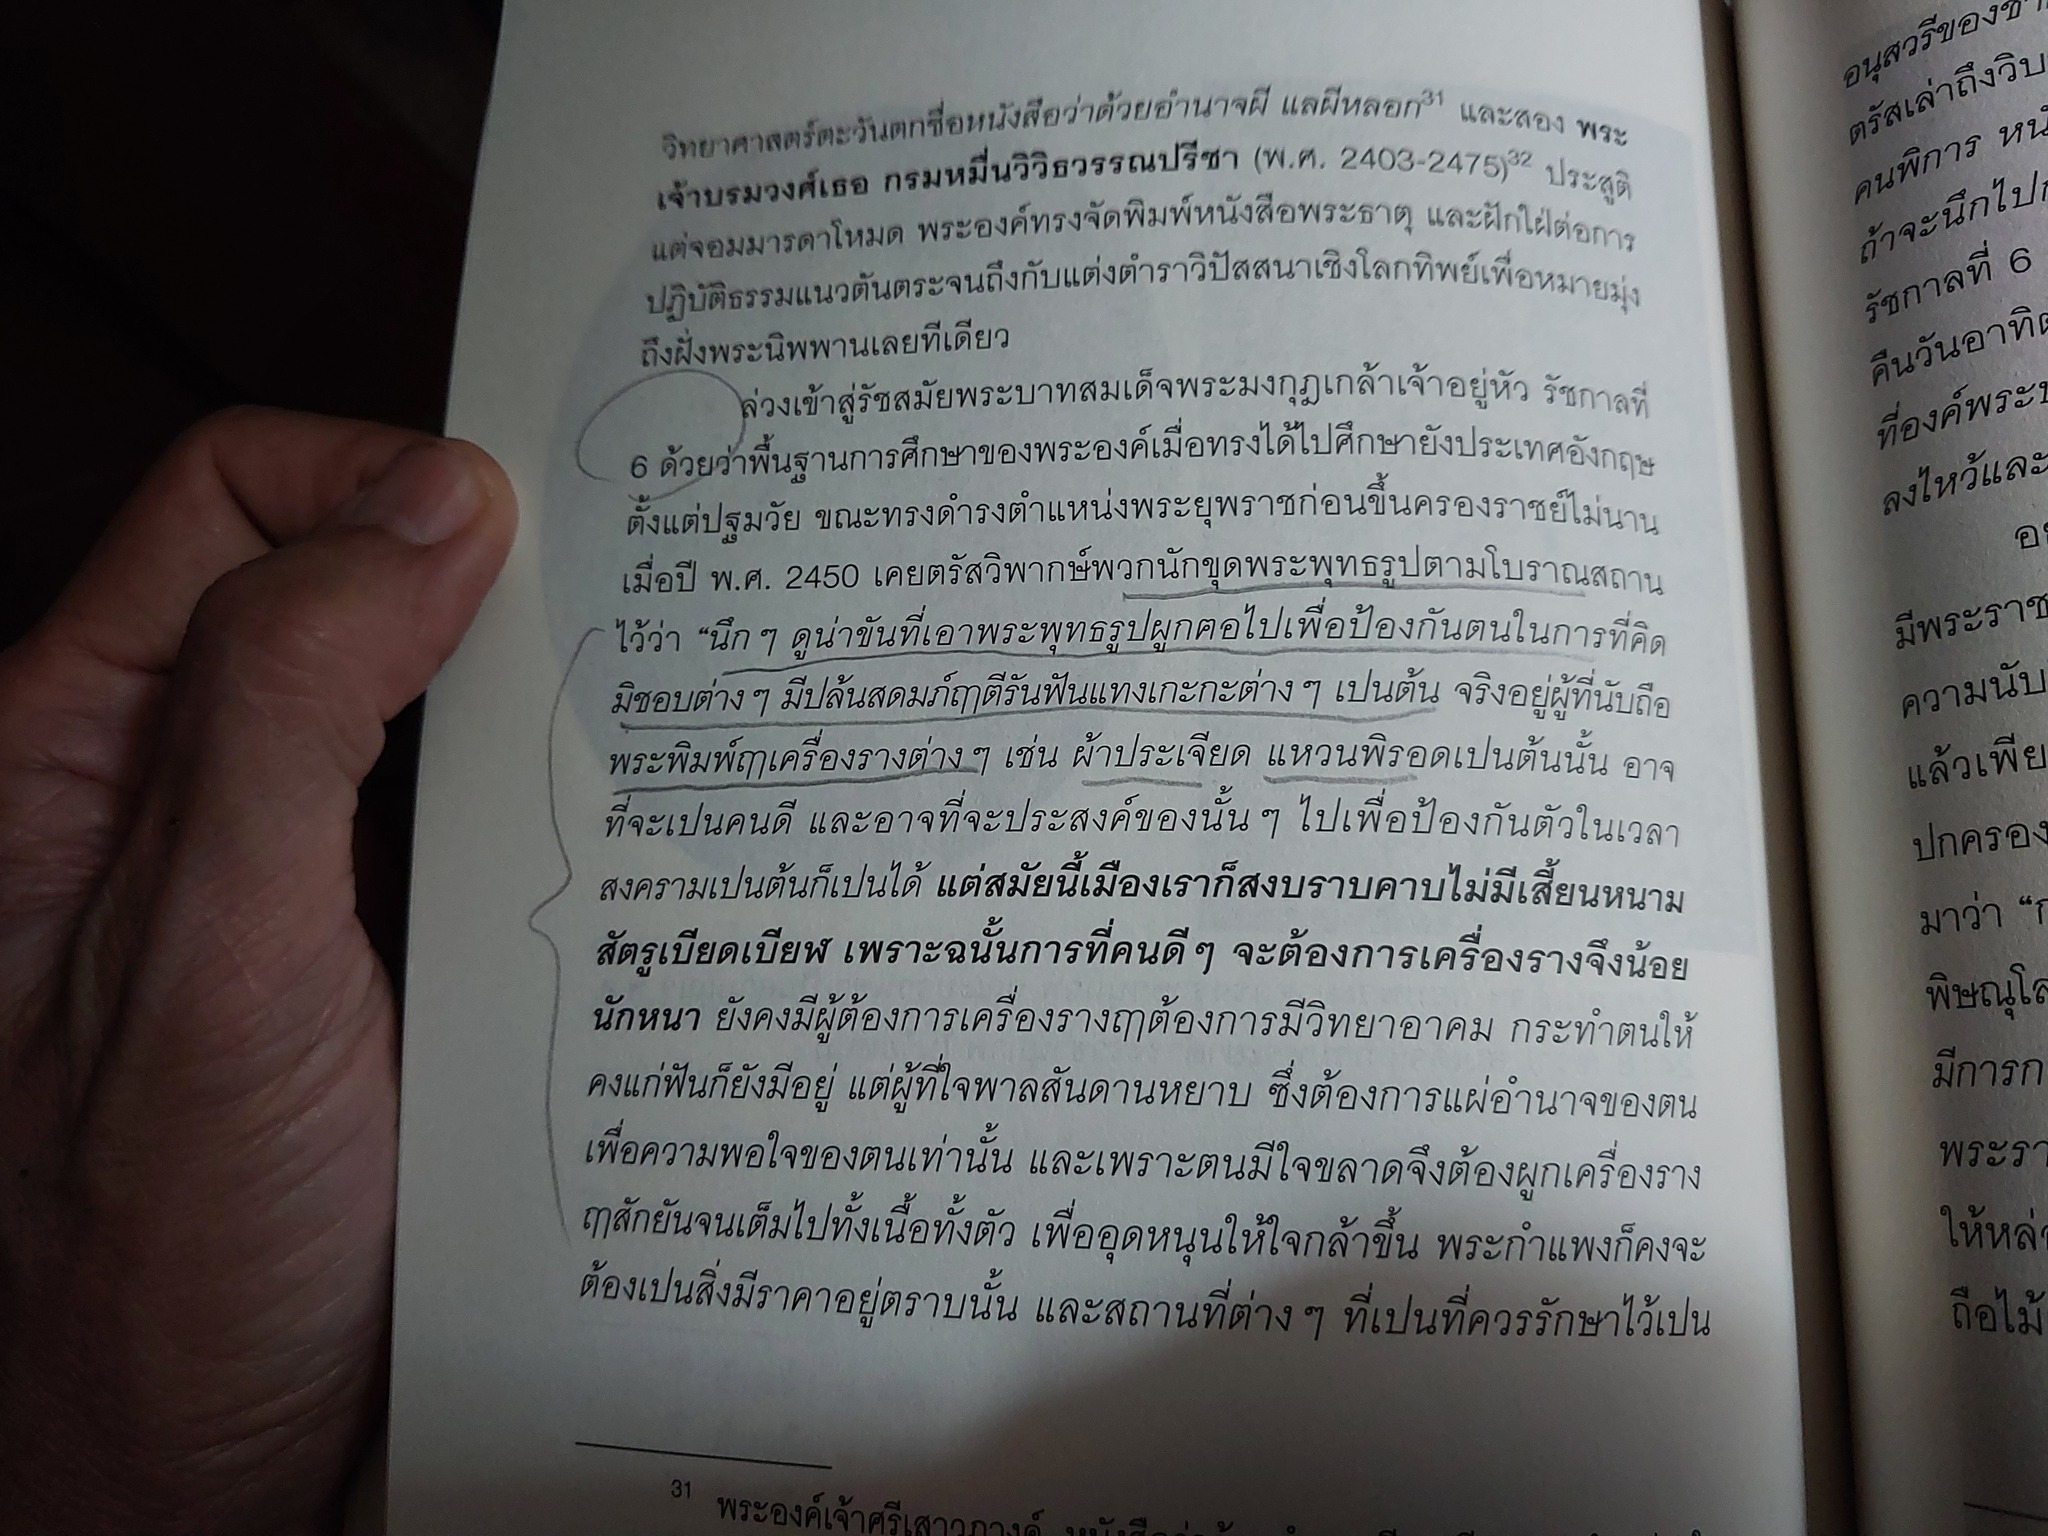 วิทยาศาสตร์ตะวันตกชื่อหนังสือว่าด้วยอำนาจผี แลผีหลอก31 และสอง พระ
เจ้าบรมวงศ์เธอ กรมหมื่นวิวิธวรรณปรีชา (พ.ศ. 2403-2475)32 ประสูติ
แต่จอมมารดาโหมด พระองค์ทรงจัดพิมพ์หนังสือพระธาตุ และฝักใฝ่ต่อการ
ปฏิบัติธรรมแนวตันตระจนถึงกับแต่งตำราวิปัสสนาเชิงโลกทิพย์เพื่อหมายมุ่ง
ถึงฝั่งพระนิพพานเลยทีเดียว
ล่วงเข้าสู่รัชสมัยพระบาทสมเด็จพระมงกุฎเกล้าเจ้าอยู่หัว รัชกาลที่
6 ด้วยว่าพื้นฐานการศึกษาของพระองค์เมื่อทรงได้ไปศึกษายังประเทศอังกฤษ
ตั้งแต่ปฐมวัย ขณะทรงดำรงตำแหน่งพระยุพราชก่อนขึ้นครองราชย์ไม่นาน
เมื่อปี พ.ศ. 2450 เคยตรัสวิพากษ์พวกนักขุดพระพุทธรูปตามโบราณสถาน
ไว้ว่า “นึก ๆ ดูน่าขันที่เอาพระพุทธรูปผูกฅอไปเพื่อป้องกันตนในการที่คิด
มิชอบต่าง ๆ มีปล้นสดมภ์ฤๅตีรันฟันแทงเกะกะต่าง ๆ เปนต้น จริงอยู่ผู้ที่นับถือ
พระพิมพ์ฤๅเครื่องรางต่าง ๆ เช่น ผ้าประเจียด แหวนพิรอดเปนต้นนั้น อาจ
ที่จะเปนคนดี และอาจที่จะประสงค์ของนั้น ๆ ไปเพื่อป้องกันตัวในเวลา
สงครามเปนต้นก็เปนได้ แต่สมัยนี้เมืองเราก็สงบราบคาบไม่มีเสี้ยนหนาม
สัตรูเบียดเบียฬ เพราะฉนั้นการที่คนดี ๆ จะต้องการเครื่องรางจึงน้อย
นักหนา ยังคงมีผู้ต้องการเครื่องรางฤๅต้องการมีวิทยาอาคม กระทำตนให้
คงแก่ฟันก็ยังมีอยู่ แต่ผู้ที่ใจพาลสันดานหยาบ ซึ่งต้องการแผ่อำนาจของตน
เพื่อความพอใจของตนเท่านั้น และเพราะตนมีใจขลาดจึงต้องผูกเครื่องราง
ฤๅสักยันจนเต็มไปทั้งเนื้อทั้งตัว เพื่ออุดหนุนให้ใจกล้าขึ้น พระกำแพงก็คงจะ
ต้องเปนสิ่งมีราคาอยู่ตราบนั้น และสถานที่ต่าง ๆ ที่เปนที่ควรรักษาไว้เปน
31 พระองค์เจ้าศรีเสาวภางค์
อนุสวรีของ
ตรัสเล่าถึง
คนพิการ
ถ้าจะนึกไป
รัชกาลที่ 6
คืนวันอาทิต
ที่องค์พระ
ลงไหว้และ
มีพระราช
ความนับ
แล้วเพีย
ปกครอง
มาว่า
พิษณุโล
มีการก
พระรา
ให้หล่
ถือไม้